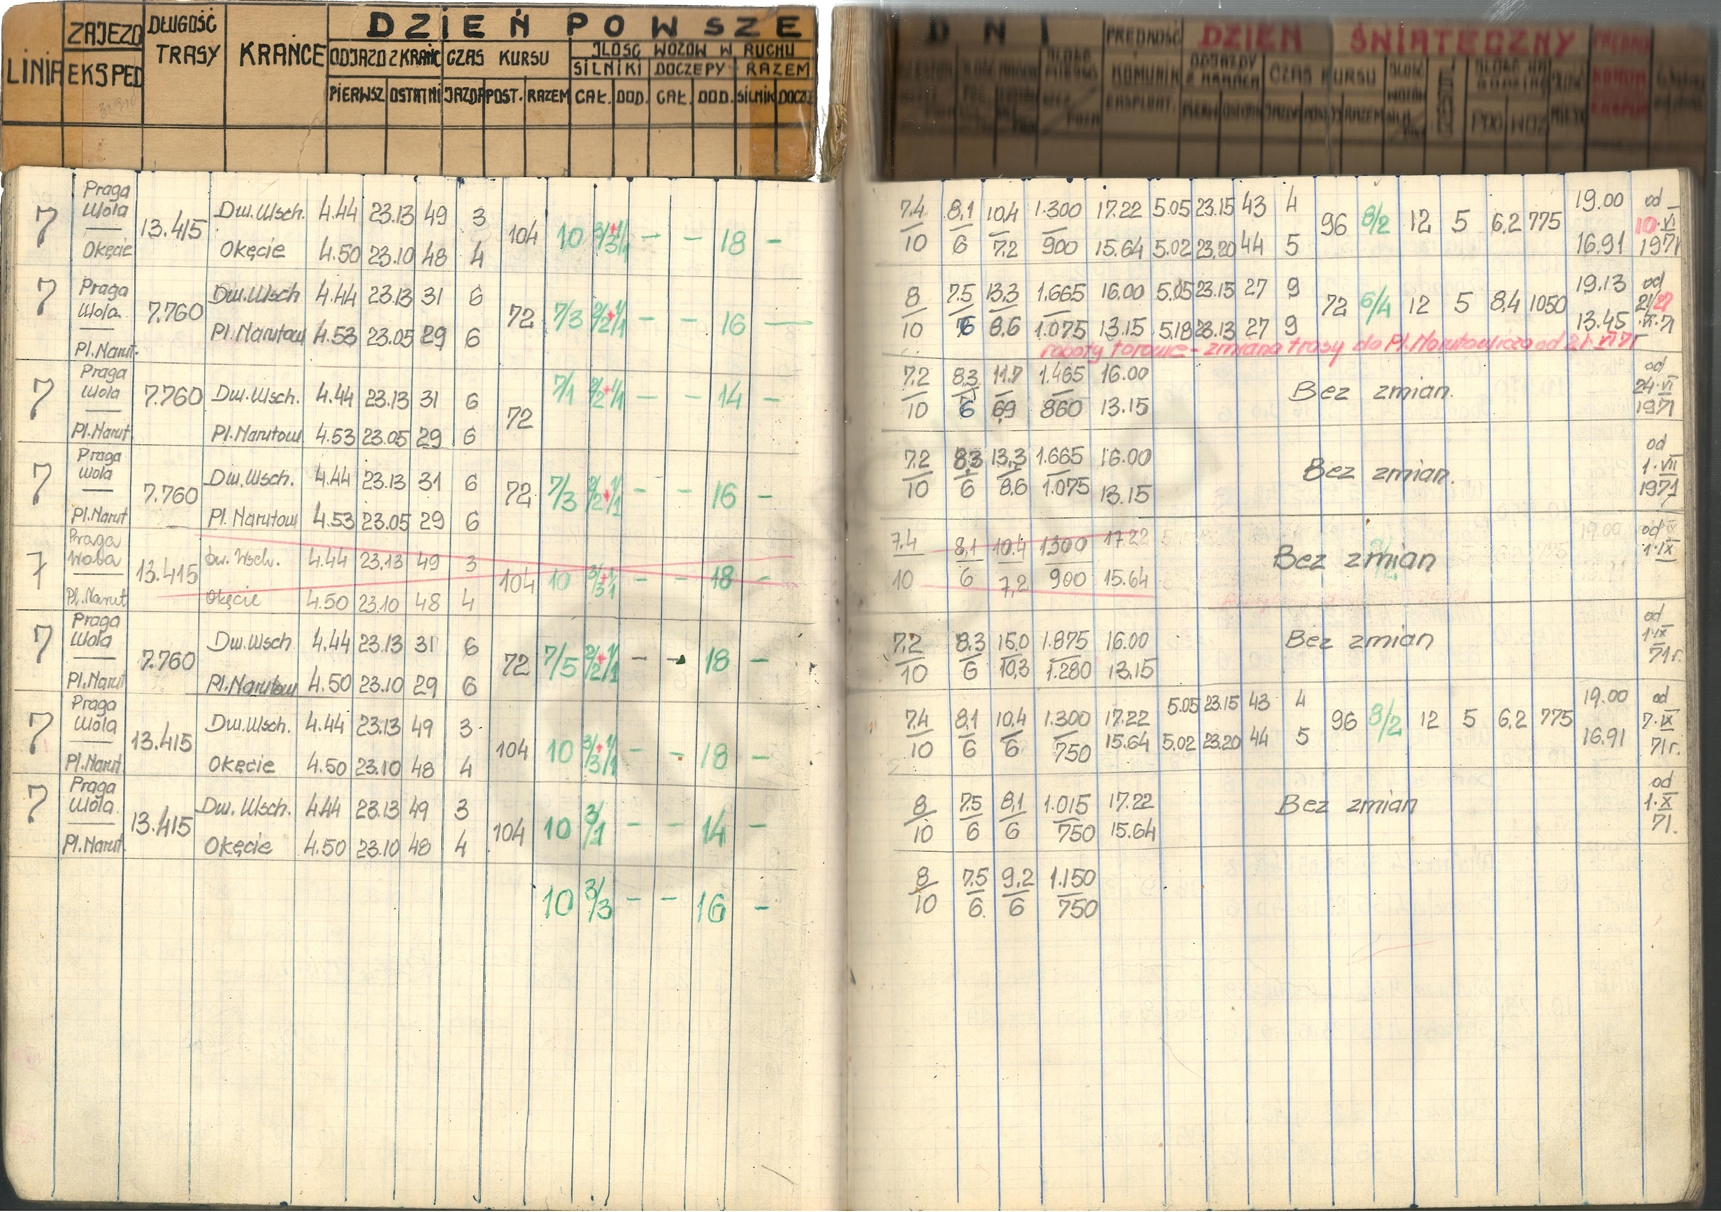 LINIA ZAJEZD EKSPED DŁUGOŚĆ TRASY KRAŃCE DZIEŃ POWSZE
ODJAZD Z KRAŃC CZAS KURSU ILOŚĆ WOZÓW W RUCHU
SILNIKI DOCZEPY RAZEM
PIERWSZ OSTATNI JAZDA POST. RAZEM CAŁ. DOD. CAŁ. DOD. SILNIK DOCZE
DNI PRĘDNOŚĆ KOMUNIK EKSPLOAT. DZIEŃ ŚWIĄTECZNY
ODJAZDY Z KRAŃCA CZAS KURSU
7 Praga Wola — Okęcie 13.415 Dw.Wsch. 4.44 23.13 49 3 104 10 — — 18 —
Okęcie 4.50 23.10 48 4
7.4/10 8,1/6 10,4/7.2 1.300/900 17.22 5.05 23.15 43 4 96 8/2 12 5 6,2 775 19.00 od 10.VI 1971
15.64 5.02 23.20 44 5 16.91
7 Praga Wola — Pl.Narut. 7.760 Dw.Wsch 4.44 23.13 31 6 72 7/3 — — 16 —
Pl.Narutow 4.53 23.05 29 6
8/10 7.5/6 13.3/8.6 1.665/1.075 16.00 5.05 23.15 27 9 72 6/4 12 5 8,4 1050 19.13 od
13.15 5.18 23.13 27 9 13.45
roboty torowe - zmiana trasy do Pl.Narutowicza od 21 VI 71r
7 Praga Wola — Pl.Narut 7.760 Dw.Wsch. 4.44 23.13 31 6 72 7/1 — — 14 —
Pl.Narutow 4.53 23.05 29 6
7.2/10 8,3/6 11.7/6,9 1.465/860 16.00 13.15 Bez zmian. od 24.VI 1971
7 Praga Wola — Pl.Narut 7.760 Dw.Wsch. 4.44 23.13 31 6 72 7/3 — — 16 —
Pl.Narutow 4.53 23.05 29 6
7.2/10 8,3/6 13,3/8.6 1.665/1.075 16.00 13.15 Bez zmian. od 1.VII 1971
7 Praga Wola — Pl.Narut 13.415 Dw. Wsch. 4.44 23.13 49 3 104 10 — — 18 —
Okęcie 4.50 23.10 48 4
7.4/10 8,1/6 10.4/7,2 1300/900 17.22 15.64 Bez zmian od 1.IX
7 Praga Wola — Pl.Narut 7.760 Dw.Wsch 4.44 23.13 31 6 72 7/5 — — 18 —
Pl.Narutow 4.50 23.10 29 6
7.2/10 8,3/6 15.0/10,3 1.875/1.280 16.00 13.15 Bez zmian od 1.IX 71r.
7 Praga Wola — Pl.Narut 13.415 Dw.Wsch. 4.44 23.13 49 3 104 10 — — 18 —
Okęcie 4.50 23.10 48 4
7.4/10 8,1/6 10,4/6 1.300/750 17.22 5.05 23.15 43 4 96 8/2 12 5 6,2 775 19.00 od 7.IX 71r.
15.64 5.02 23.20 44 5 16.91
7 Praga Wola — Pl.Narut. 13.415 Dw. Wsch. 4.44 23.13 49 3 104 10 3/1 — — 14 —
Okęcie 4.50 23.10 48 4
8/10 7.5/6 8,1/6 1.015/750 17.22 15.64 Bez zmian od 1.X 71.
10 3/3 — — 16 —
8/10 7.5/6 9,2/6 1.150/750